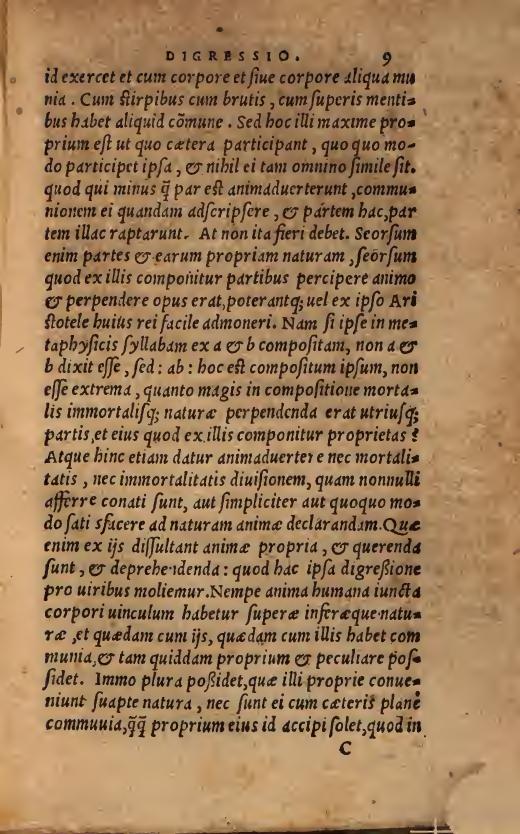 DIGRESSIO. 9
id exercet et cum corpore et ſiue corpore aliqua mu
nia . Cum ſtirpibus cum brutis , cum ſuperis menti=
bus habet aliquid cõmune . Sed hoc illi maxime pro=
prium eſt ut quo cætera participant , quo quo mo-
do participet ipſa , & nihil ei tam omnino ſimile ſit.
quod qui minus q̃ par eſt animaduerterunt ,commu=
nionem ei quandam adſcripſere , & partem hac,par
tem illac raptarunt. At non ita fieri debet. Seorſum
enim partes & earum propriam naturam , ſeorſum
quod ex illis componitur partibus percipere animo
& perpendere opus erat,poterantq; uel ex ipſo Ari
ſtotele huius rei facile admoneri. Nam ſi ipſe in me=
taphyſicis ſyllabam ex a & b compoſitam, non a &
b dixit eſſe , ſed : ab : hoc eſt compoſitum ipſum, non
eſſe extrema , quanto magis in compoſitioue morta=
lis immortaliſq; naturæ perpendenda erat utriuſq;
partis,et eius quod ex illis componitur proprietas ?
Atque hinc etiam datur animaduertere nec mortali=
tatis , nec immortalitatis diuiſionem, quam nonnulli
afferre conati ſunt, aut ſimpliciter aut quoquo mo=
do ſati sfacere ad naturam animæ declarandam.Quæ
enim ex ijs diſſultant animæ propria , & querenda
ſunt , & deprehendenda : quod hac ipſa digreßione
pro uiribus moliemur.Nempe anima humana iuncta
corpori uinculum habetur ſuperæ inferæque natu=
ræ ,et quædam cum ijs, quædam cum illis habet com
munia,& tam quiddam proprium & peculiare poſ=
ſidet. Immo plura poßidet,quæ illi proprie conue=
niunt ſuapte natura , nec ſunt ei cum cæteris plane
commuuia,q̃q̃ proprium eius id accipi ſolet,quod in
C